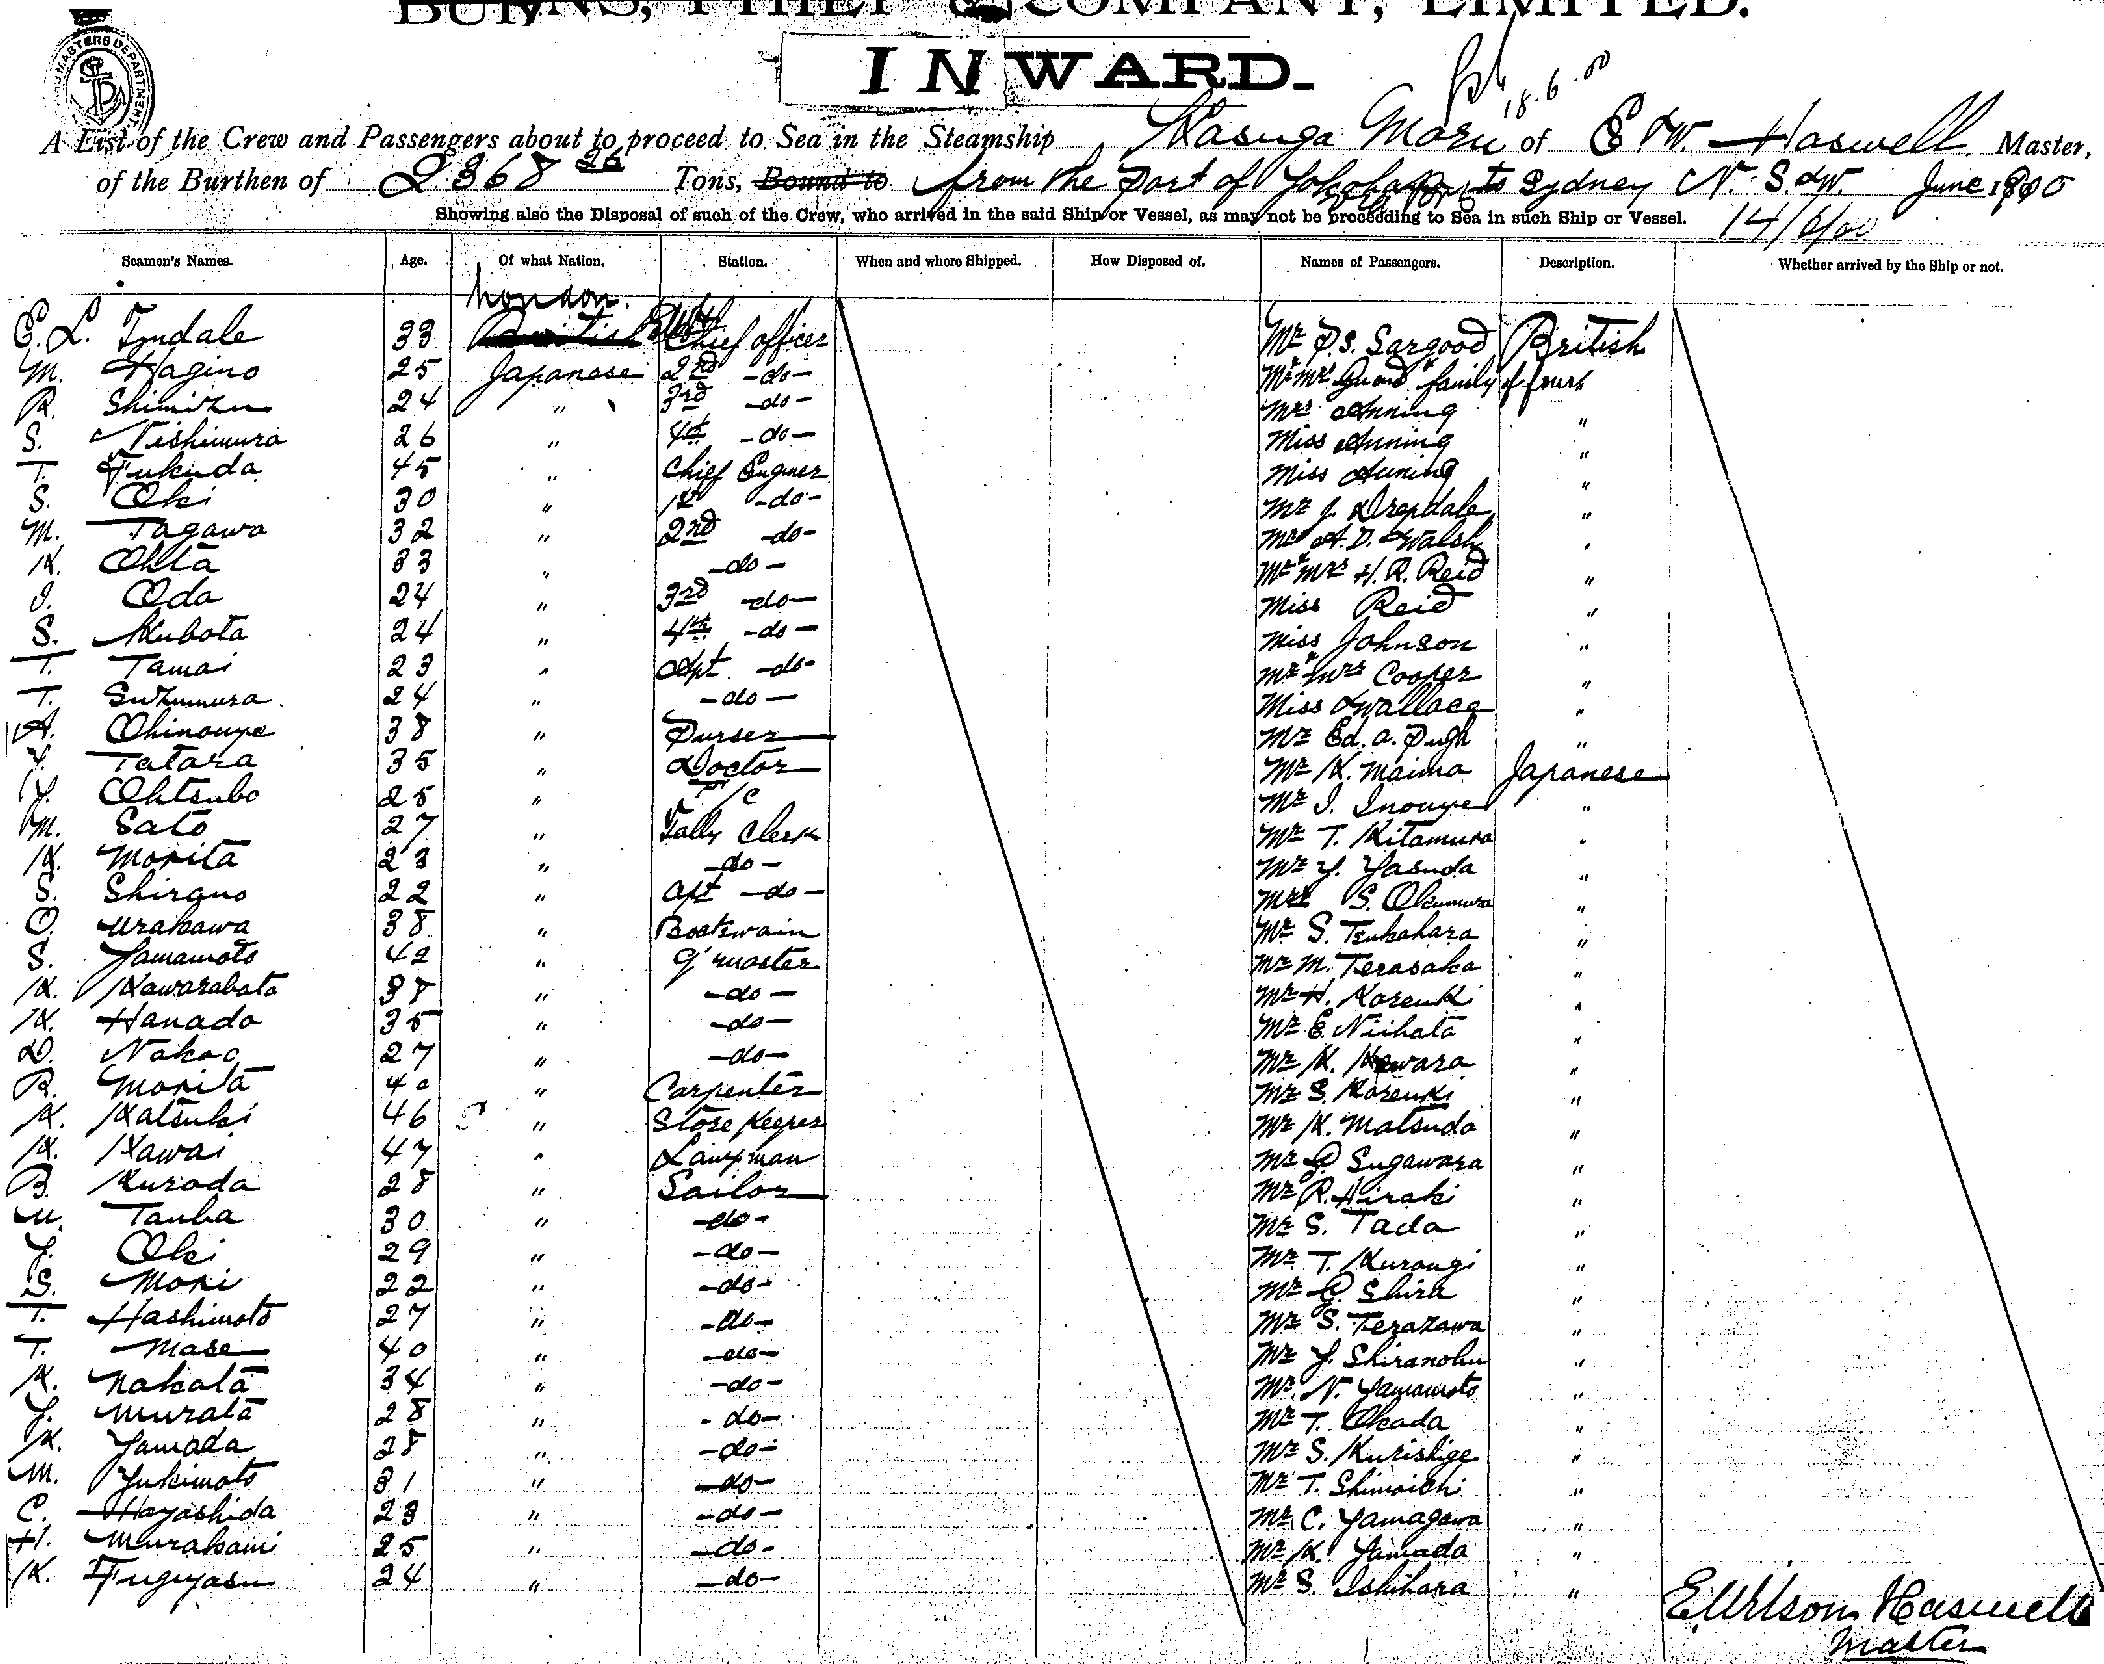 BURNS, PHILP & COMPANY, LIMITED.
INWARD.
MASTERS DEPARTMENT
18.6.00
A List of the Crew and Passengers about to proceed to Sea in the Steamship Kasuga Maru of E W. Haswell Master,
of the Burthen of 2368 26 Tons, Bound to from the Port of Yokohama to Sydney N. S. W. June 1900
Showing also the Disposal of such of the Crew, who arrived in the said Ship or Vessel, as may not be proceeding to Sea in such Ship or Vessel. 14/6/00
Seamen's Names. Age. Of what Nation. Station. When and where Shipped. How Disposed of. Names of Passengers. Description. Whether arrived by the Ship or not.
London.
E. L. Tyndale 33 British Chief officer Mr P.S. Sargood British
M. Hagino 25 Japanese 2nd -do- Mr & Mrs family of four
R. Shimizu 24 " 3rd -do- Mrs Anning "
S. Nishimura 26 " 4th -do- Miss Anning "
T. Fukuda 45 " Chief Enginer Miss Anning "
S. Oki 30 " 1st -do- Mr J. "
M. Tagawa 32 " 2nd -do- Mr A.D. Walsh "
K. Ohta 33 " -do- Mr & Mrs H. R. Reid "
I. Oda 24 " 3rd -do- Miss Reid "
S. Kubota 24 " 4th -do- Miss Johnson "
T. Tamai 23 " Apt -do- Mr & Mrs Cooper "
T. Suzumura 24 " -do- Miss Wallace "
A. Ohinouye 38 " Purser Mr Ed. A. Pugh "
Y. Tatara 35 " Doctor Mr K. Maima Japanese
Y. Ohtsubo 25 " F/C Mr I. Inouye "
M. Sato 27 " Tally Clerk Mr T. Kitamura "
K. Morita 23 " -do- Mr Y. Yasuda "
S. Shirano 22 " Apt -do- Mr S. Okumura "
O. Urakawa 38 " Boatswain Mr S. Tsukahara "
S. Yamamoto 42 " Q'master Mr M. Terasaka "
K. Kawarabata 37 " -do- Mr H. Korenki "
K. Hanado 35 " -do- Mr E. Niihata "
D. Nakao 27 " -do- Mr K. Kawara "
R. Morita 40 " Carpenter Mr S. Korenki "
K. Katsuki 46 " Store Keeper Mr K. Matsuda "
K. Kawai 47 " Lampman Mr G. Sugawara "
B. Kuroda 28 " Sailor Mr R. Hiraki "
U. Tanba 30 " -do- Mr S. Tada "
Y. Oki 29 " -do- Mr T. Kurangi "
S. Mori 22 " -do- Mr G. Shira "
T. Hashimoto 27 " -do- Mr S. Terazawa "
T. Mase 40 " -do- Mr Y. Shiranohu "
K. Nakata 34 " -do- Mr N. Yamamoto "
Y. Murata 28 " -do- Mr T. Okada "
K. Yamada 28 " -do- Mr S. Kurishige "
M. Yukimoto 31 " -do- Mr T. Shimoichi "
C. Hayashida 23 " -do- Mr C. Yamagawa "
H. Murakami 25 " -do- Mr K. Yamada "
K. Fuguyasu 24 " -do- Mr S. Ishihara "
E. Wilson Haswell
Master